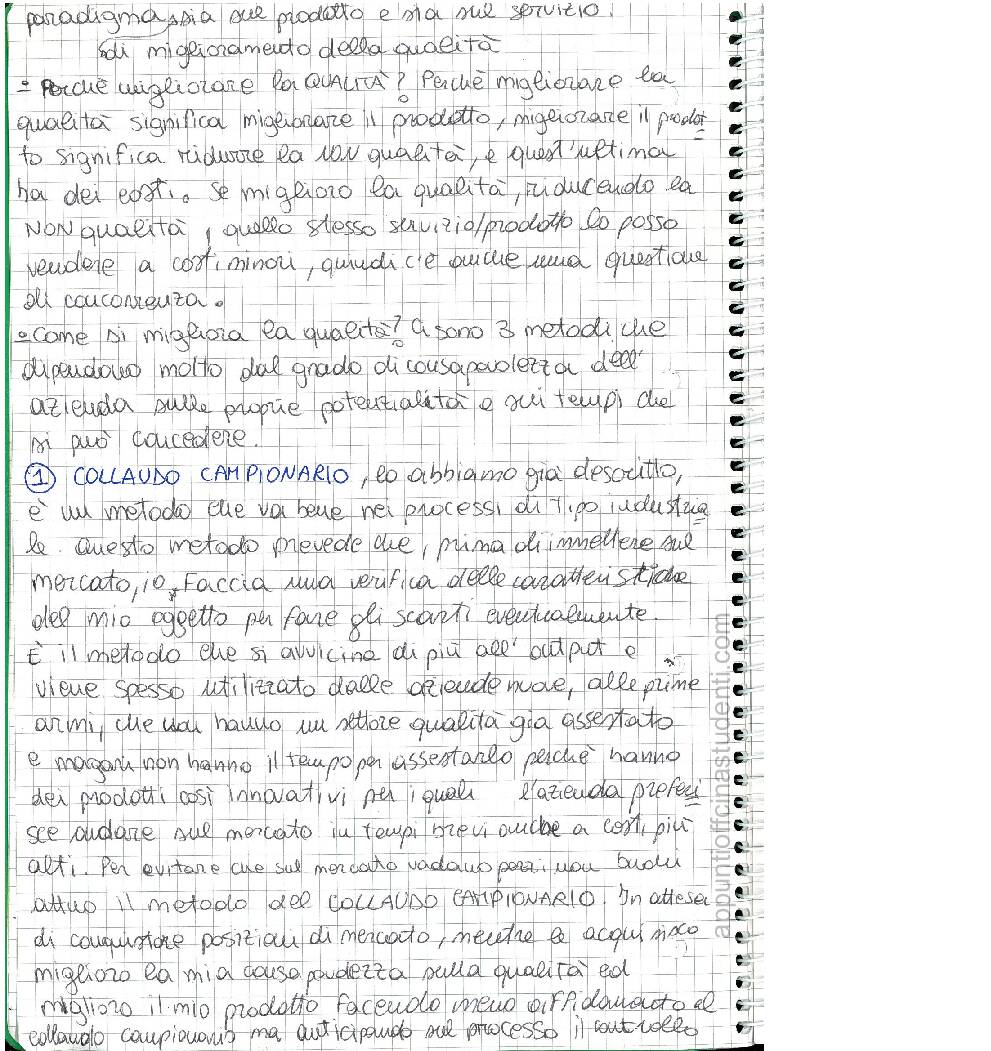 paradigma, sia sul prodotto e sia sul servizio.
di miglioramento della qualità
- Perchè migliorare la QUALITÀ? Perchè migliorare la
qualità significa migliorare il prodotto, migliorare il prodot
to significa ridurre la NON qualità, e quest'ultima
ha dei costi. Se miglioro la qualità, riducendo la
NON qualità, quello stesso servizio/prodotto lo posso
vendere a costi minori, quindi c'è anche una questione
di concorrenza.
- Come si migliora la qualità? Ci sono 3 metodi che
dipendono molto dal grado di consapevolezza dell'
azienda sulle proprie potenzialità e sui tempi che
si può concedere.
1 COLLAUDO CAMPIONARIO, lo abbiamo già descritto,
è un metodo che va bene nei processi di tipo industria
le. Questo metodo prevede che, prima di immettere sul
mercato, io faccia una verifica delle caratteristiche
del mio oggetto per fare gli scarti eventualmente.
È il metodo che si avvicina di più all'output e
viene spesso utilizzato dalle aziende nuove, alle prime
armi, che non hanno un settore qualità già assestato
e magari non hanno il tempo per assestarlo perchè hanno
dei prodotti così innovativi per i quali l'azienda preferi
sce andare sul mercato in tempi brevi anche a costi più
alti. Per evitare che sul mercato vadano pezzi non buoni
attuo il metodo del COLLAUDO CAMPIONARIO. In attesa
di conquistare posizioni di mercato, mentre le acquisisco
miglioro la mia consapevolezza sulla qualità ed
miglioro il mio prodotto facendo meno affidamento al
collaudo campionario ma anticipando sul processo il controllo
appuntiofficinastudenti.com